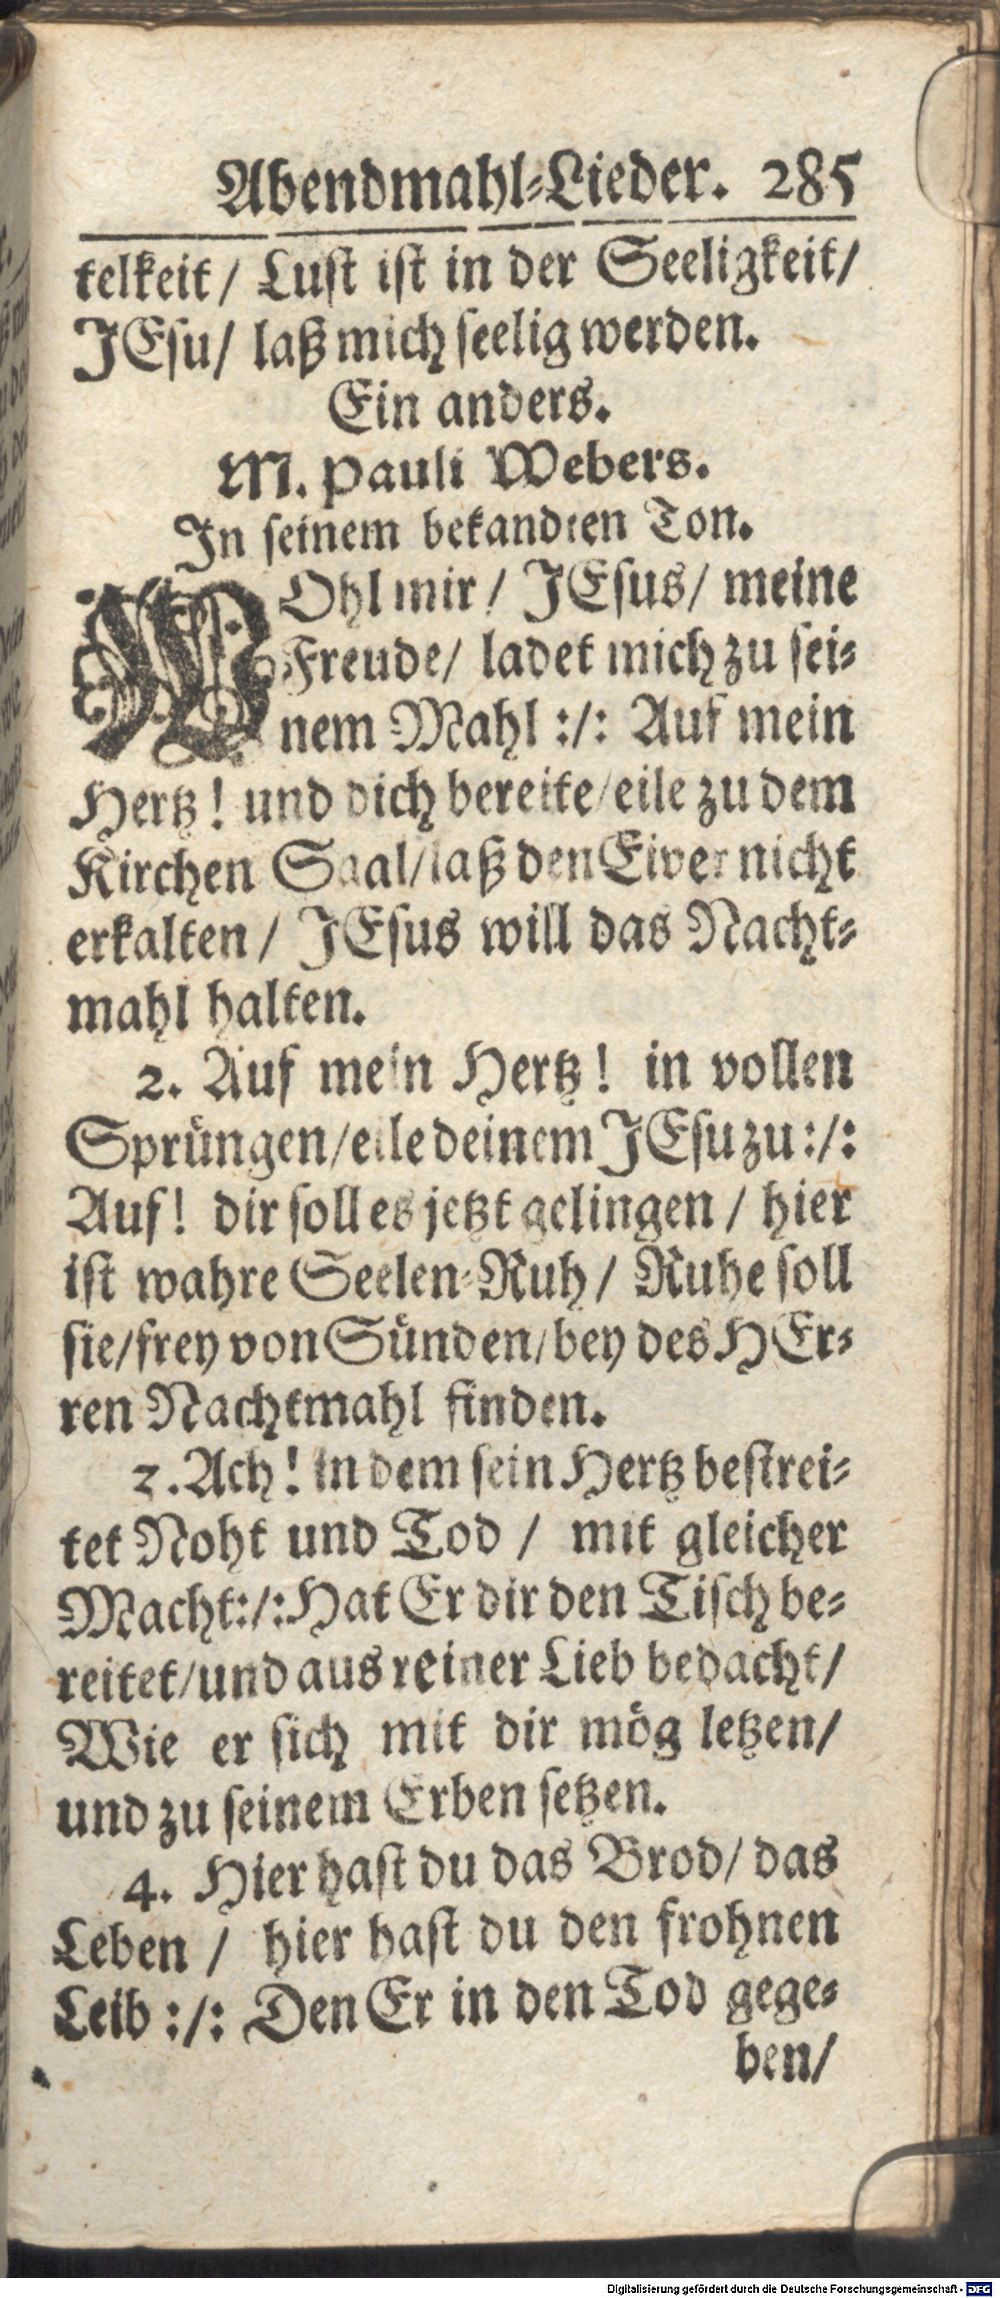 Abendmahl-Lieder. 285
telkeit / Lust ist in der Seeligkeit /
JEsu / laß mich seelig werden.
Ein anders.
M. Pauli Webers.
In seinem bekandten Ton.
WOhl mir / JEsus / meine
Freude / ladet mich zu sei-
nem Mahl :/: Auf mein
Hertz! und dich bereite / eile zu dem
Kirchen Saal / laß den Eiver nicht
erkalten / JEsus will das Nacht-
mahl halten.
2. Auf mein Hertz! in vollen
Sprüngen / eile deinem JEsu zu :/:
Auf! dir soll es jetzt gelingen / hier
ist wahre Seelen-Ruh / Ruhe soll
sie / frey von Sünden / bey des HEr-
ren Nachtmahl finden.
2. Ach! in dem sein Hertz bestrei-
tet Noht und Tod / mit gleicher
Macht :/: Hat Er dir den Tisch be-
reitet / und aus reiner Lieb bedacht /
Wie er sich mit dir mög letzen /
und zu seinem Erben setzen.
4. Hier hast du das Brod / das
Leben / hier hast du den frohnen
Leib :/: Den Er in den Tod gege-
ben /
Digitalisierung gefördert durch die Deutsche Forschungsgemeinschaft - DFG